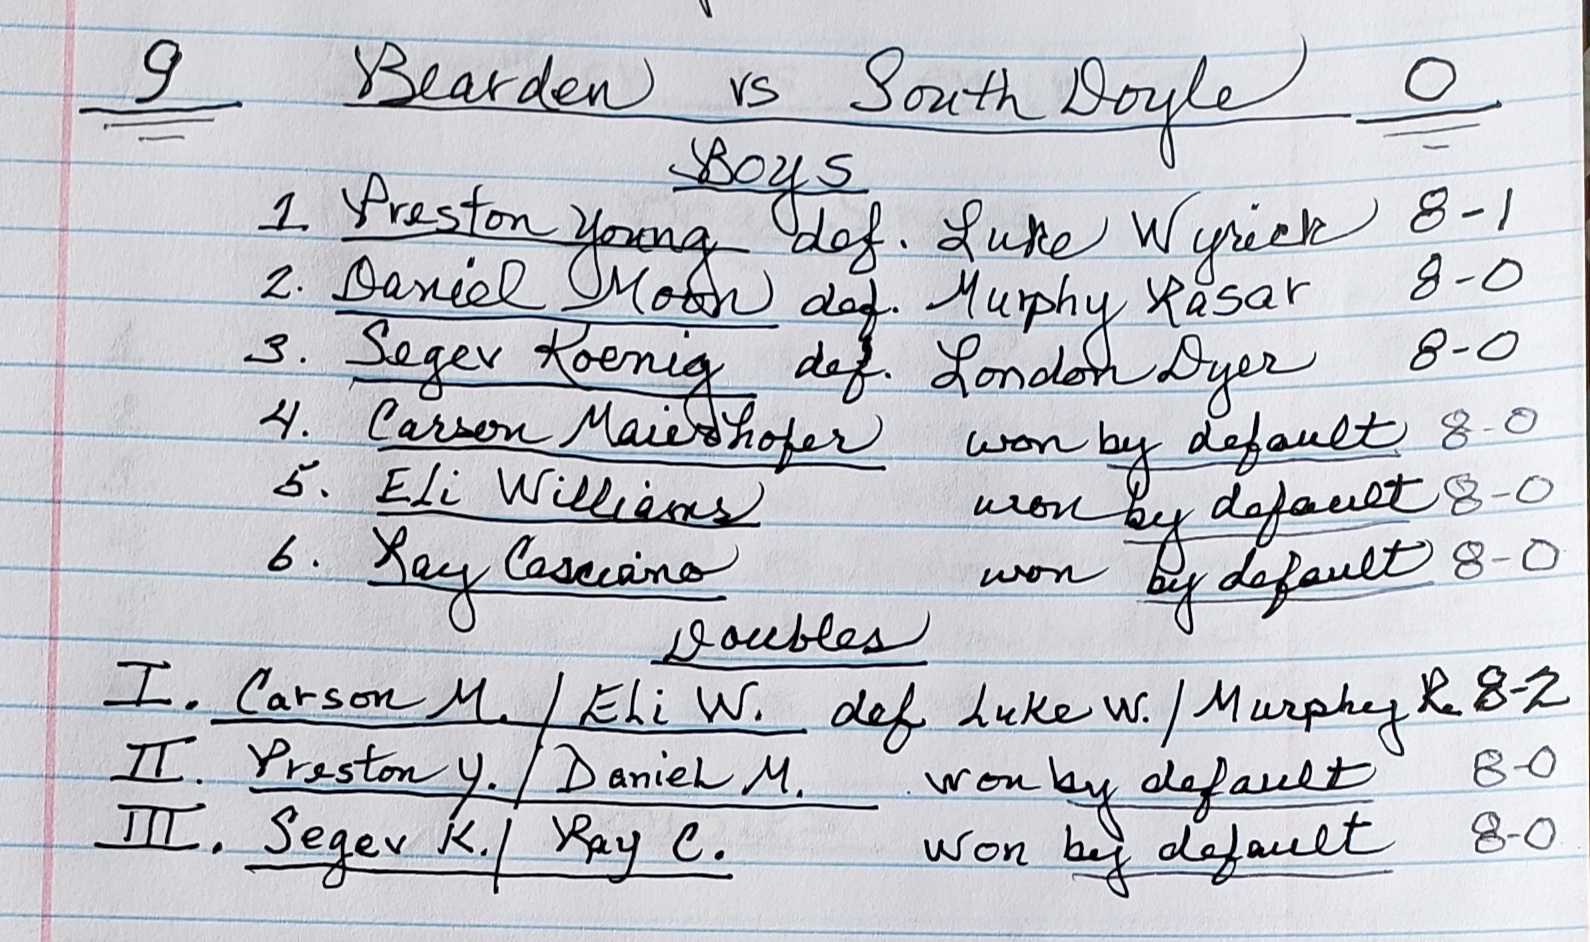 9 Bearden vs South Doyle 0
Boys
1. Preston Young def. Luke Wyrick 8-1
2. Daniel Moon def. Murphy Rasar 8-0
3. Segev Koenig def. London Dyer 8-0
4. Carson Maierhofer won by default 8-0
5. Eli Williams won by default 8-0
6. Ray Casciano won by default 8-0
Doubles
I. Carson M. / Eli W. def Luke W. / Murphy R. 8-2
II. Preston Y. / Daniel M. won by default 8-0
III. Segev K. / Ray C. won by default 8-0